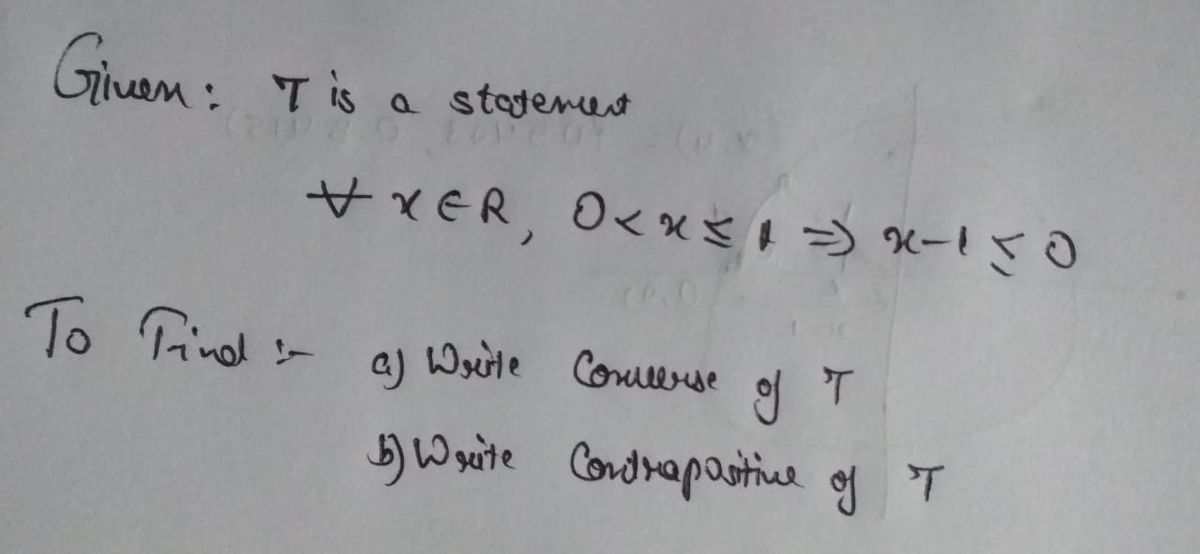 Given: T is a statement
∀ x ∈ R, 0 < x ≤ 1 ⇒ x-1 ≤ 0
To Find :- a) Write Converse of T
b) Write Contrapositive of T